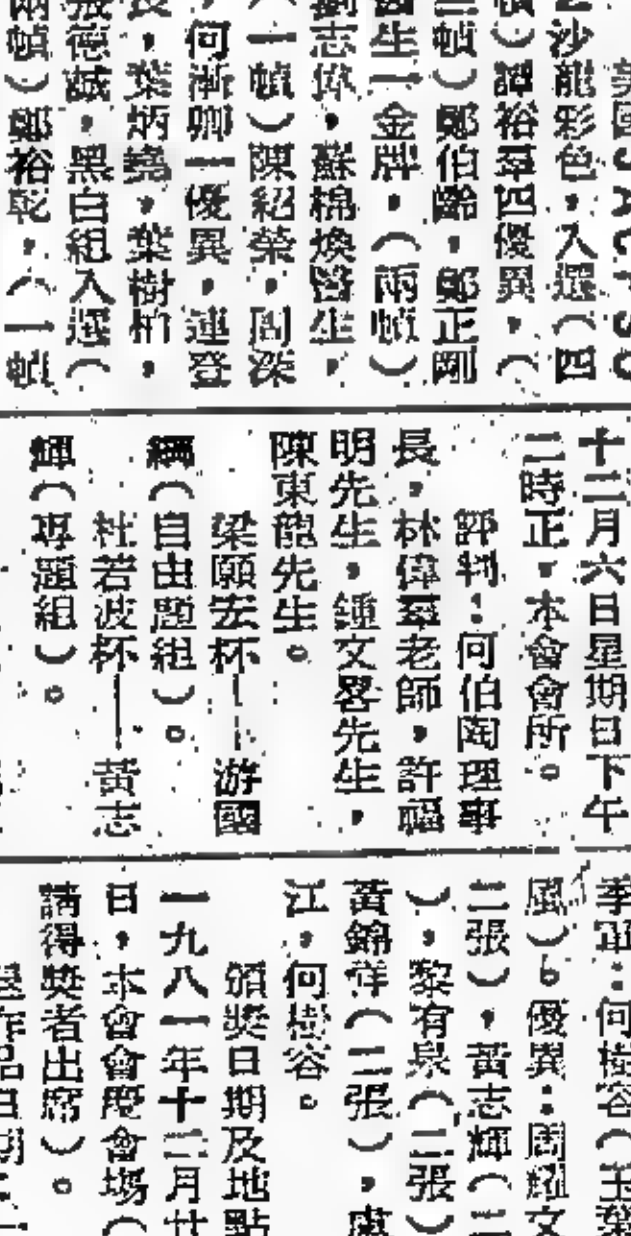 沙龍彩色，入選（四
幀）譚裕羣四優異，（
二幀）鄭伯齡，鄭正剛
醫生一金牌，（兩幀）
劉志偉，蘇棉煥醫生，
（一幀）陳紹榮，周深
，何漸卿一優異，連登
長，葉炳堯，葉樹柏，
張德誠，黑白組入選（
兩幀）鄭裕乾，（一幀
十二月六日星期日下午
二時正，本會會所。
評判：何伯陶理事
長，林偉羣老師，許福
明先生，鍾文畧先生，
陳東龍先生。
梁願宏杯——游國
綱（自由題組）。
杜若波杯——黃志
輝（專題組）。
季軍：何樹容（玉葉
風）。優異：周耀文
二張），黃志輝（二
），黎有泉（二張）
黃錦祥（二張），盧
江，何樹容。
頒獎日期及地點
一九八一年十二月廿
日，本會會慶會塲（
請得獎者出席）。